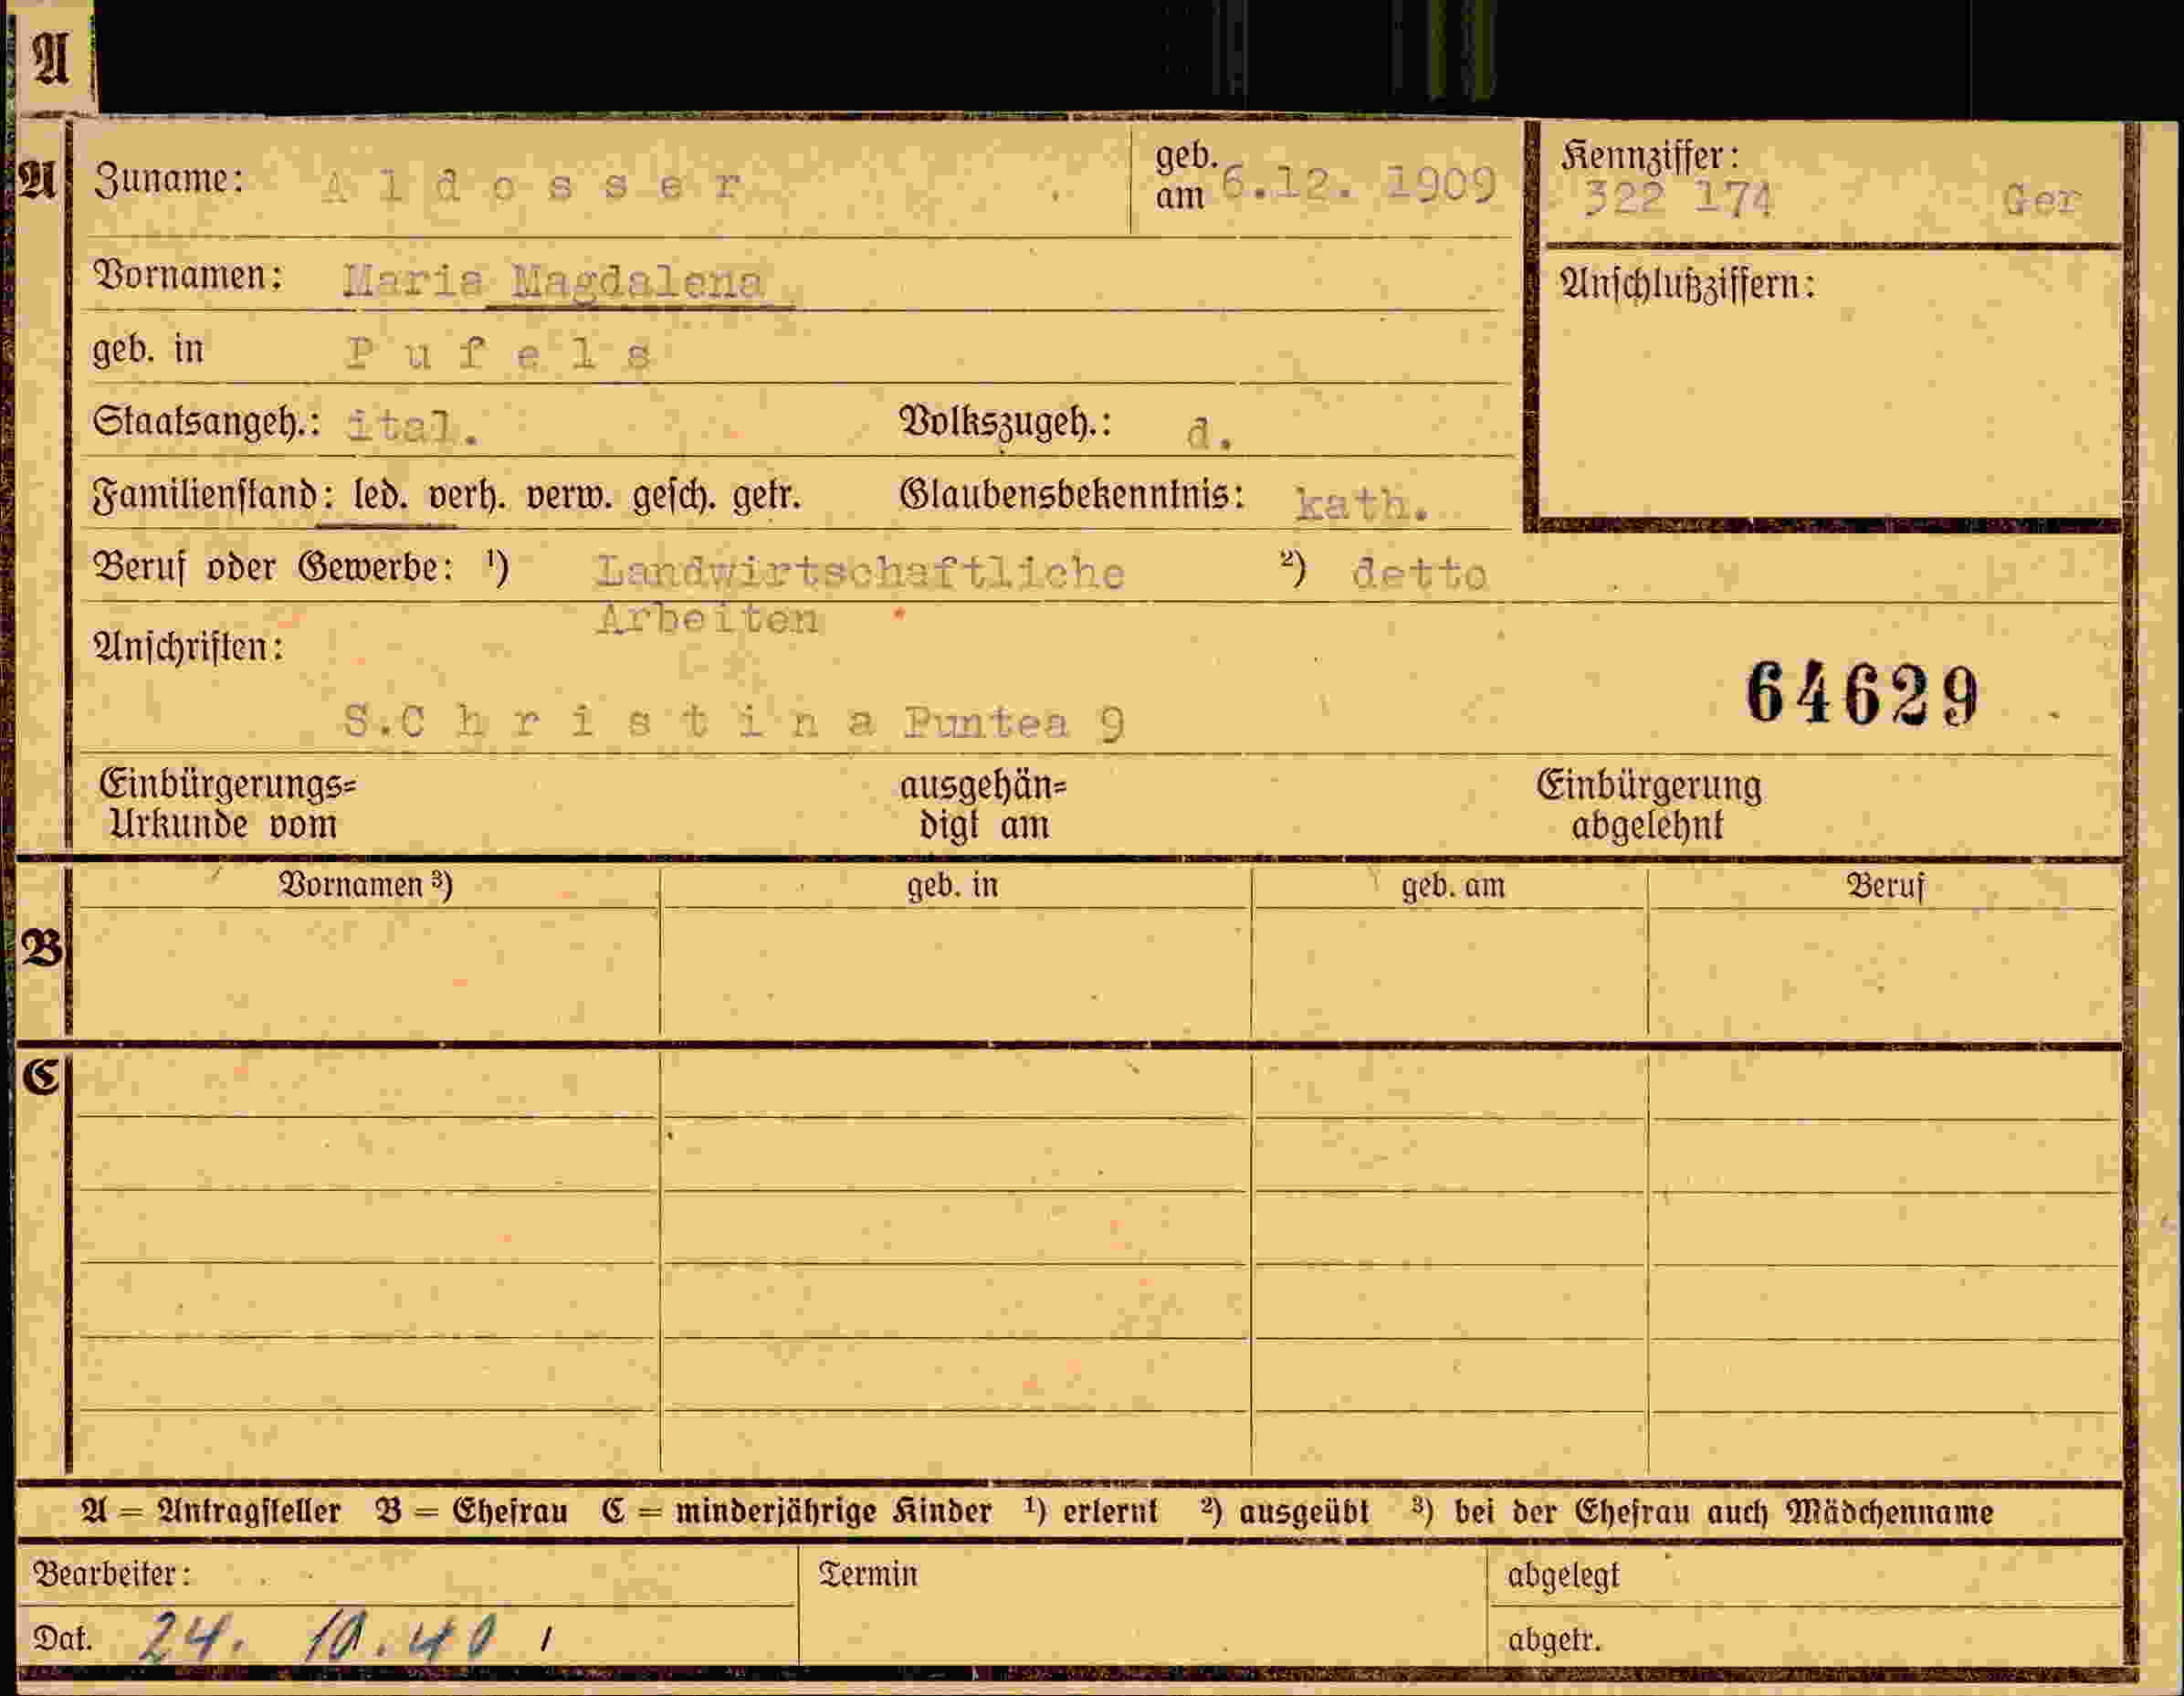 A
A Zuname: Aldosser geb. am 6.12. 1909 Kennziffer: 322 174 Ger
Vornamen: Maria Magdalena Anschlußziffern:
geb. in Pufels
Staatsangeh.: ital. Volkszugeh.: d.
Familienstand: led. verh. verw. gesch. getr. Glaubensbekenntnis: kath.
Beruf oder Gewerbe: ¹) Landwirtschaftliche ²) detto
Arbeiten
Anschriften:
64629
S.Christina Puntea 9
Einbürgerungs= ausgehän= Einbürgerung
Urkunde vom digt am abgelehnt
Vornamen ³) geb. in geb. am Beruf
B
C
A = Antragsteller B = Ehefrau C = minderjährige Kinder ¹) erlernt ²) ausgeübt ³) bei der Ehefrau auch Mädchenname
Bearbeiter: Termin abgelegt
Dat. 24. 10. 40 abgetr.